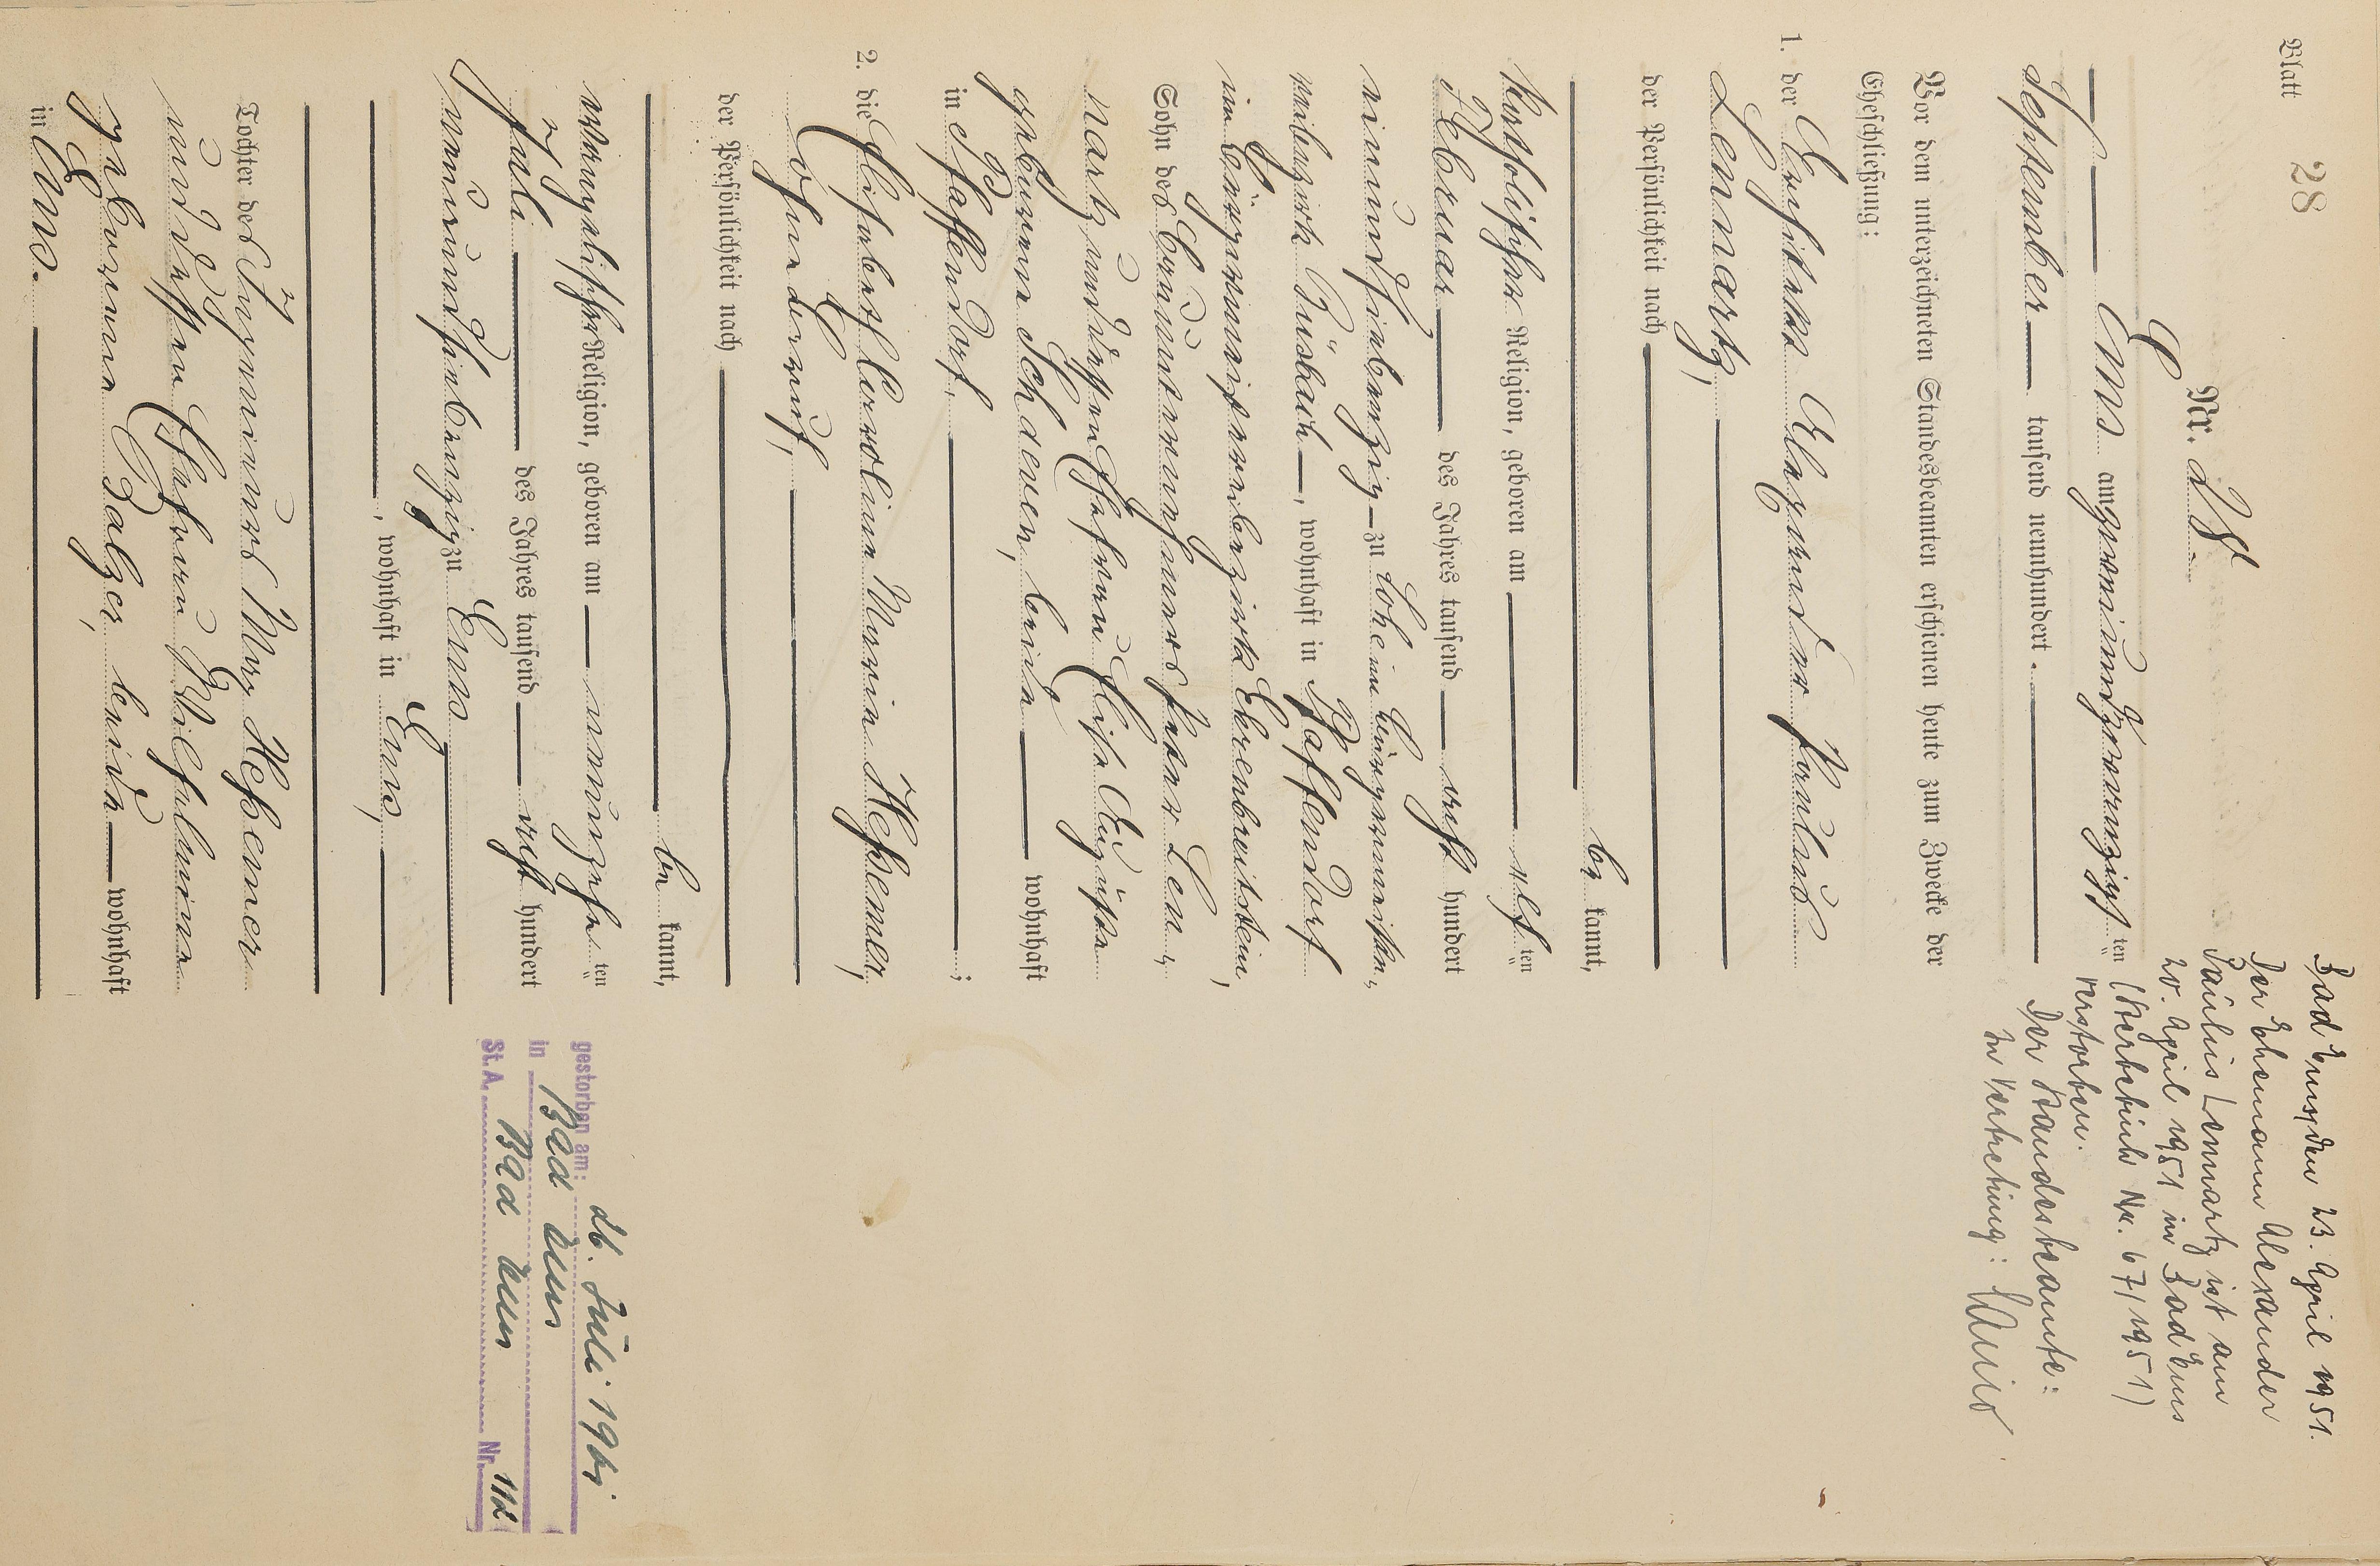 Blatt 28
Nr. 28.
Ems am zweiundzwanzigsten
September tausend neunhundert
Vor dem unterzeichneten Standesbeamten erschienen heute zum Zwecke der
Eheschließung:
1. der Architekt Alexander Paulus
Lennartz,
der Persönlichkeit nach
be kannt,
katholischer Religion, geboren am elf ten
Februar des Jahres tausend acht hundert
einundsiebenzig zu Lohe im Bürgermeiste-
reibezirk Büsbach, wohnhaft in Pfaffendorf
im Bürgermeistereibezirk Ehrenbreitstein,
Sohn des Peter Len-
nartz und dessen Ehefrau Elisa Auguste
geborene Schoenen, beide wohnhaft
in Pfaffendorf. ;
2. die Elisabeth Caroline Maria Heßemer,
ohne Beruf,
der Persönlichkeit nach
be kannt,
evangelischer Religion, geboren am neunzehn ten
Juli des Jahres tausend acht hundert
neunundsiebenzig zu Ems
, wohnhaft in Ems,
Tochter des Ingenieurs Max Heßemer
und dessen Ehefrau Wilhelmine
geborene Balzer, beide wohnhaft
in Ems.
Bad Ems, den 23. April 1951.
Der Ehemann Alexander
Paulus Lennartz ist am
20. April 1951 in Bad Ems
(Sterbebuch Nr. 67/1951)
verstorben.
Der Standesbeamte:
In Vertretung:
gestorben am: 26. Juli 1961
in Bad Ems
St.A. Bad Ems Nr. 112